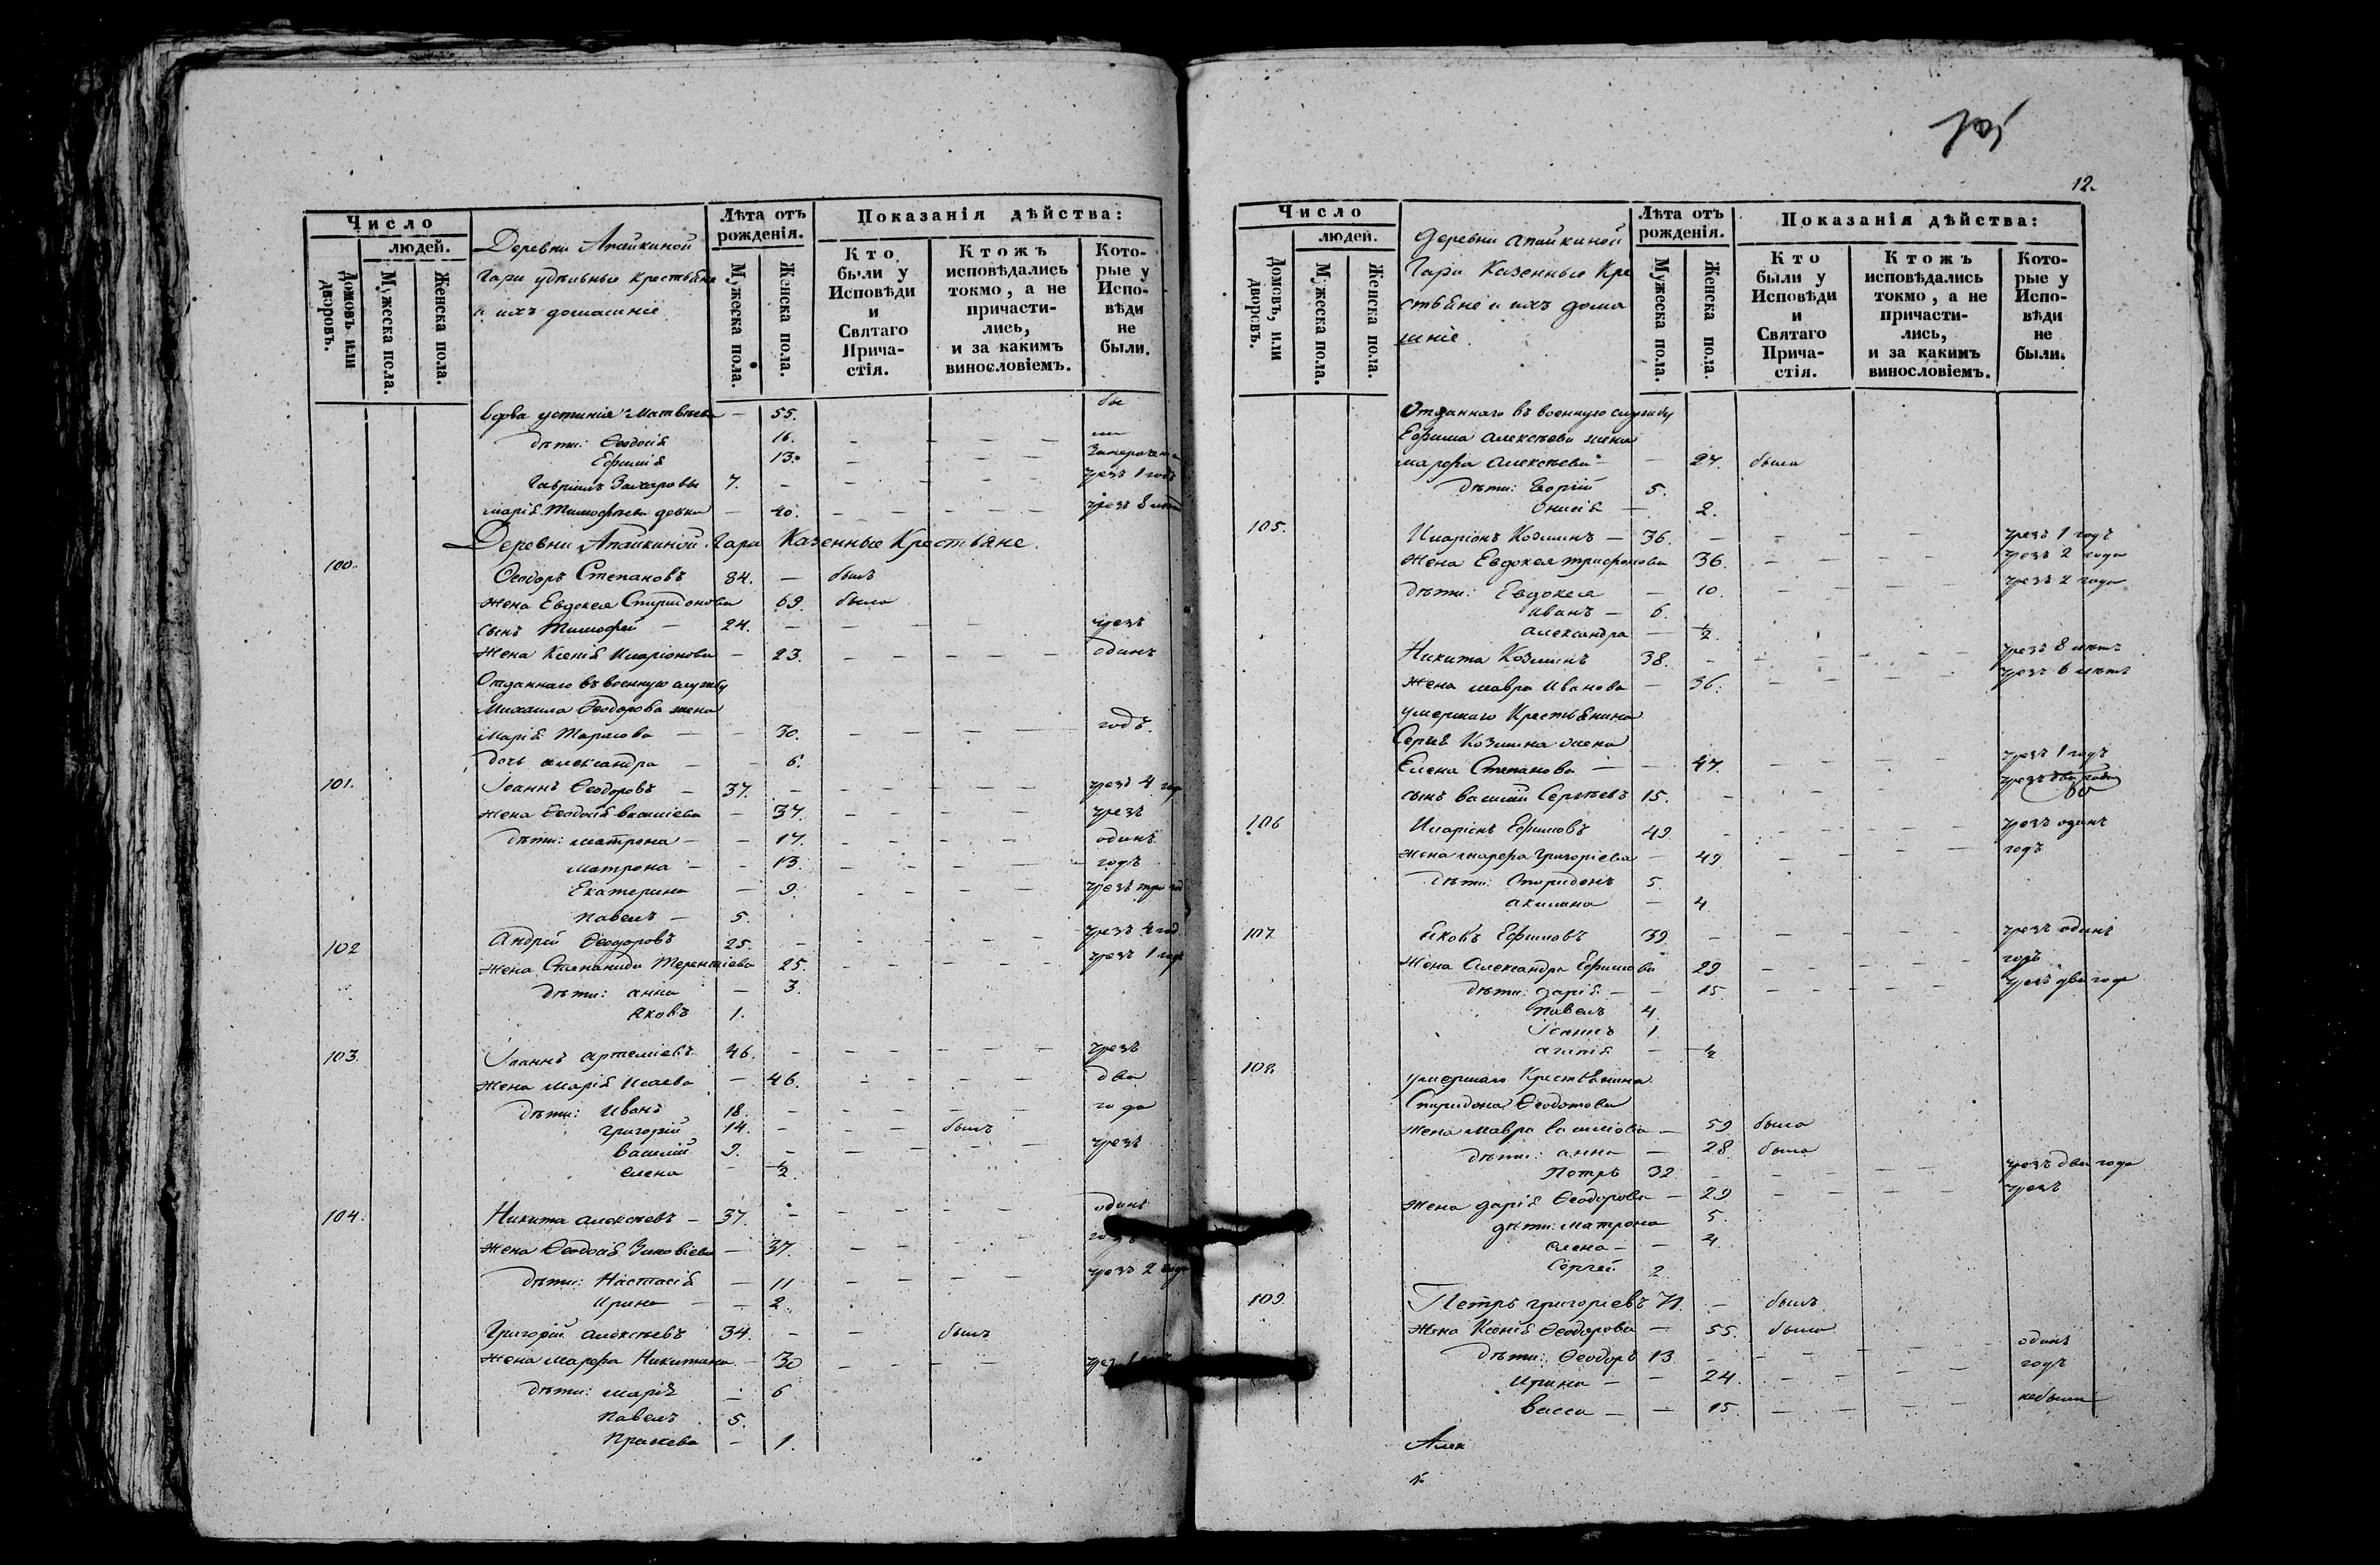 Число
людей.
Домовъ или дворовъ.
Мужеска пола.
Женска пола.
Деревни Апайкиной
Гари удѣльные крестьяне
и ихъ домашніе
Лѣта отъ рожденія.
Мужеска пола.
Женска пола.
Показанія дѣйства:
Кто были у Исповѣди и Святаго Прича-стія.
Ктожъ исповѣдались токмо, а не причасти-лись, и за какимъ винословіемъ.
Кото-рые у Испо-вѣди не были.
вдова устинія Матвѣева — 55.
дѣти: Ѳеодосія 16. — — — —
Ефимія 13. — — — —
Гавріилъ Захаровы 7. — — — — — чрезъ 1 годъ
марія Тимофѣева девка — 40. — — — — — чрезъ 8
Деревни Апайкиной Гари Казенные Крестьяне.
100. Ѳеодоръ Степановъ 84. — былъ
жена Евдокея Спиридонова 69. была
сынъ Тимофей — 24. — — — — чрезъ
жена Ксенія Иларіонова — 23. — — — — — одинъ
Отданнаго въ военную службу
Михаила Ѳеодорова жена
Марія Тарасова — — 30. — — — — — годъ.
дочь александра — — 6.
101. Іоаннъ Ѳеодоровъ — 37. — — — — — чрезъ 4 год
жена Ѳеодосія василіева — 37. — — — — чрезъ
дѣти: матрона — — 17. — — — — — одинъ
матрона — — 13 — — — — годъ
Екатерина — 9. — — — — чрезъ три год
павелъ — 5.
102 Андрей Ѳеодоровъ 25. — — — — — чрезъ 4 год
жена Степанида Терентіева 25. — — — — — чрезъ 1 годъ
дѣти: анна — 3.
яковъ 1.
103. Іоаннъ артеміевъ 46. — — — — — — чрезъ
жена марія Исаева — 46. — — — — два
дѣти: Иванъ 18. — — — — — года
григорій 14. — — — былъ
василій 9. — — — — — чрезъ
елена — ½.
104. Никита алексѣевъ — 37. — — — — — одинъ
жена Ѳеодосія Зиновіева — 37. — — — — —
дѣти: Настасія — 11 — — — — — чрезъ 2 года
Ирина — — 2.
Григорій алексѣевъ 34. — — былъ
жена марфа Никитина — 30 — — — —
дѣти: марія — 6
павелъ 5.
Праскева — 1.
12.
Число
людей.
Домовъ, или дворовъ.
Мужеска пола.
Женска пола.
Деревни апайкиной
Гари Казенные Кре
стьяне и ихъ дома
шніе.
Лѣта отъ рожденія.
Мужеска пола.
Женска пола.
Показанія дѣйства:
Кто были у Исповѣди и Святаго Прича-стія.
Ктожъ исповѣдались токмо, а не причасти-лись, и за какимъ винословіемъ.
Кото-рые у Испо-вѣди не были.
Отданнаго въ военную службу
Ефима алексѣева жена
марфа алексѣева — — 27. была
дѣти: Георгій 5.
— 2.
105. Иларіонъ Козминъ — 36. — — — — — чрезъ 1 годъ
жена Евдокея трифонова 36. — — — — — чрезъ 2 года
дѣти: Евдокея — 10. — — — — чрезъ 2 года
иванъ — 6.
александра — ½.
Никита Козминъ 38. — — — — — — чрезъ 8 лѣтъ
жена мавра Иванова — 36. — — — — — чрезъ 6 лѣтъ
умершаго Крестьянина
Сергѣя Козмина жена
Елена Степанова — — 47. — — — — — чрезъ 1 годъ
сынъ василій Сергѣевъ 15. — — — — чрезъ два года
106 Иларіонъ Ефимовъ 49. — — — — — — чрезъ одинъ
жена марфа Григоріева — 49 — — — — — годъ
дѣти: Спиридонъ 5.
акилина — 4
107 Яковъ Ефимовъ 39. — — — — — чрезъ одинъ
жена Александра Ефимова 29 — — — — — годъ
дѣти: дарія — — 15. — — — — — чрезъ два года
павелъ 4
Іоаннъ 1.
агапія — ½
108. умершаго Крестьянина
Спиридона Ѳеодотова
жена мавра васильева — 59 была
дѣти: анна — 28. была
Петръ 32. — — — — чрезъ два года
жена дарія Ѳеодорова — 29 — — — — чрезъ
дѣти: матрона 5.
елена — — 4.
Сергей 2
109. Петръ григоріевъ 71. — былъ
жена Ксенія Ѳеодорова — 55. была
дѣти: Ѳеодоръ 13. — — — — — — одинъ
Ирина — — 24. — — — — годъ
васса — — 15. — — — — небыли
Алек